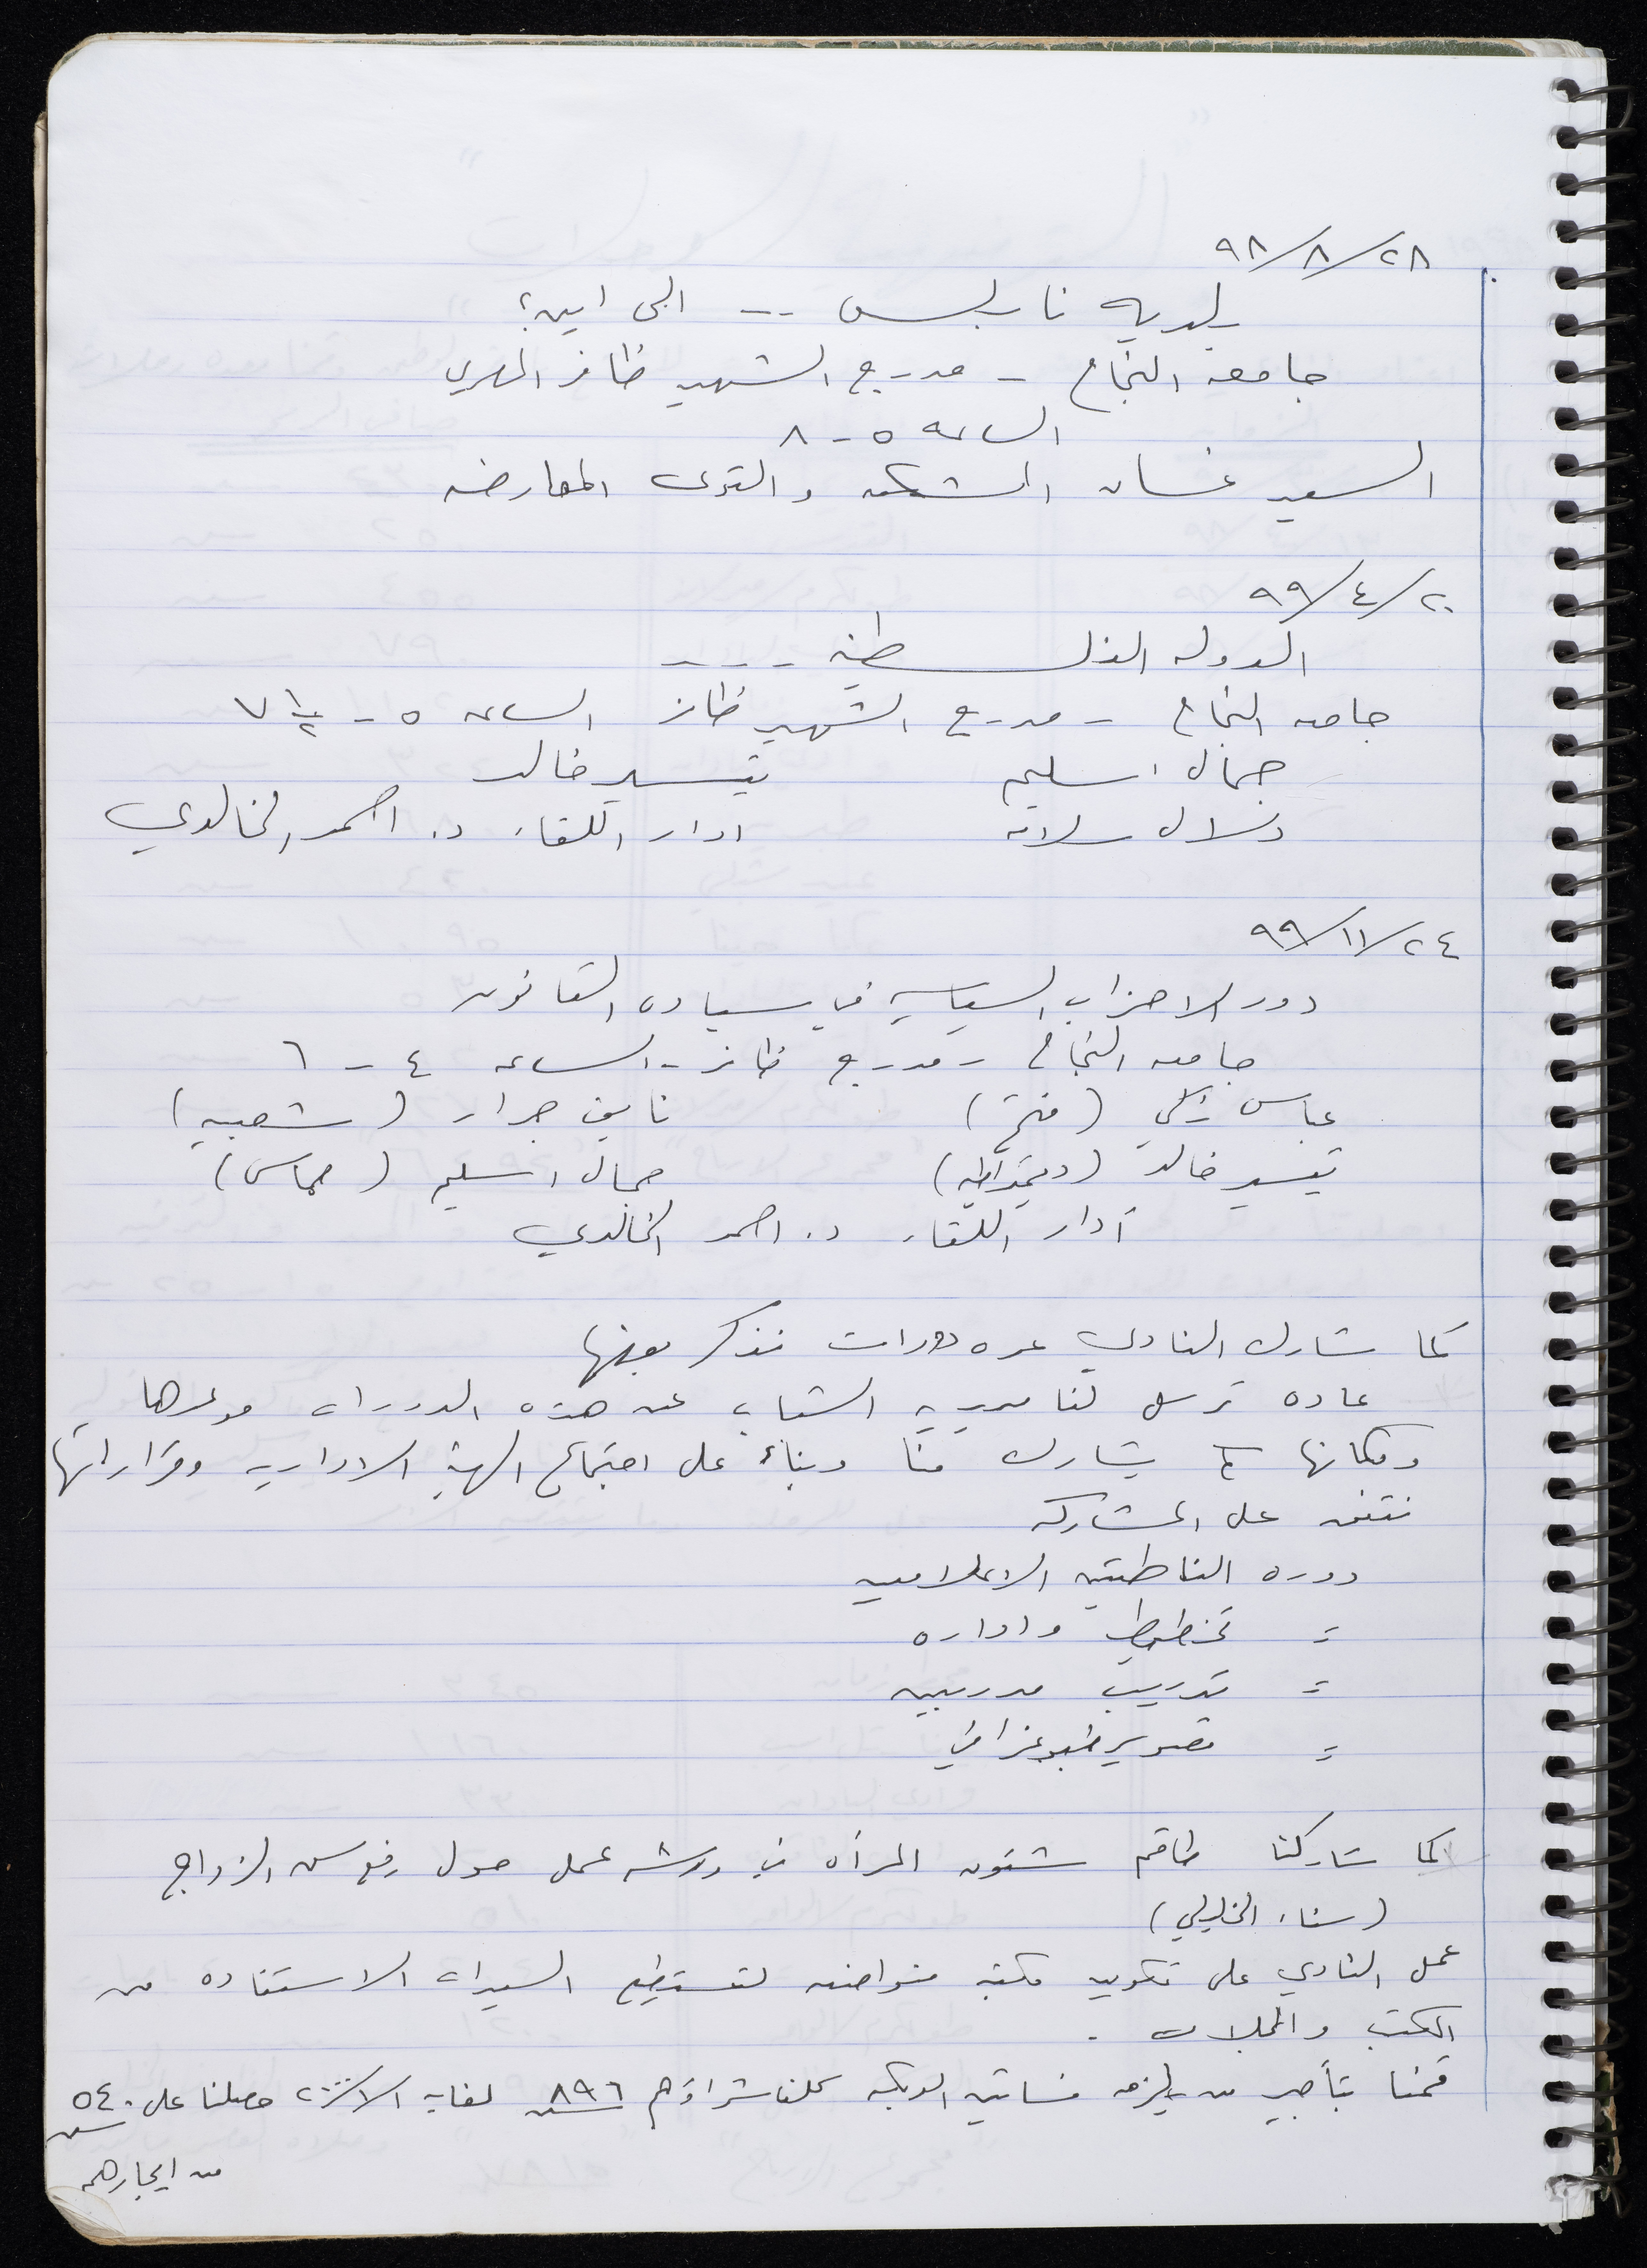 ٩٨/٨/٢٨
بلديه نابلس -- الى اين؟
جامعه النجاح - مدرج الشهيد ظافر المصري
الساعه ٥ - ٨
السيد غسان الشكعه والقوى المعارضه
٩٩/٤/٢٠
الدوله الفلسطينيه - - - -
جامعه النجاح - مدرج الشهيد ظافر الساعه ٥ - ٧ ١/٢
جمال اسليم تيسير خالد
دلال سلامه ادار اللقاء د. احمد الخالدي
٩٩/١١/٢٤
دور الاحزاب السياسيه في سياده القانون
جامعه النجاح - مدرج ظافر - الساعه ٤ - ٦
عباس زكي (فتح) نايف جرار (شعبيه)
تيسير خالد (ديمقراطيه) جمال اسليم (حماس)
أدار اللقاء د. احمد الخالدي
كما شارك النادي عده دورات نذكر بعضها
عاده ترسل لنا مديريه الشباب عن هذه الدورات موعدها
ومكانها كم يشارك منا وبناءً على اجتماع الهيئه الاداريه وقراراتها
نتفق على المشاركه
دوره الناطقين الاعلاميين
= تخطيط واداره
= تدريب مدربين
= تصوير فوتوغرافي
كما شاركنا طاقم شئون المرأه في ورشه عمل حول رفع سن الزواج
(سناء الخليلي)
عمل النادي على تكوين مكتبه متواضعه لتستطيع السيدات الاستفاده من
الكتب والمجلات .
قمنا بتأجير من يلزمه فساتين الدبكه كلفنا شراؤهم ٨٩٦ لغايه الان حصلنا على ٥٤٠
من ايجارهم